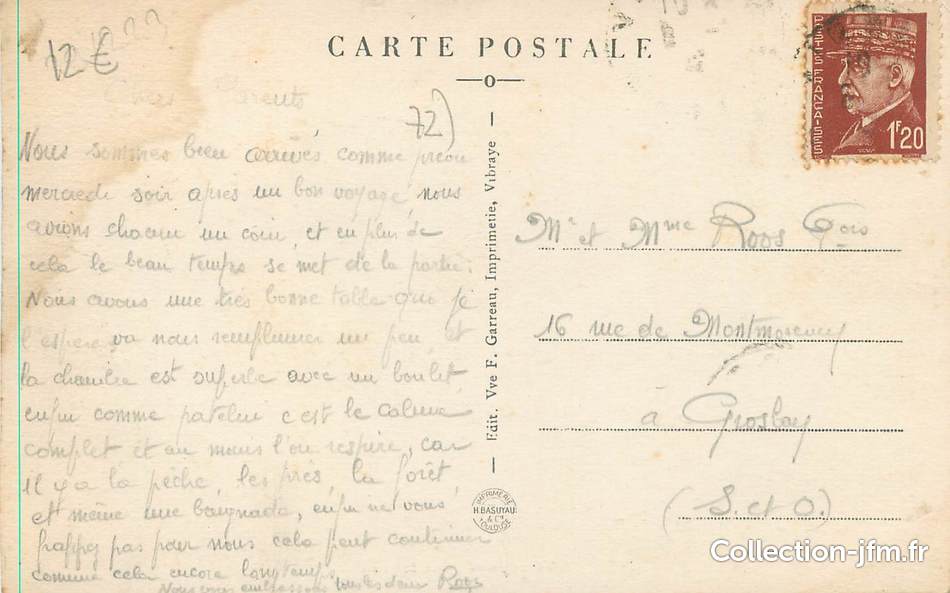 12 €
CARTE POSTALE
POSTES FRANÇAISES
1F20
72)
Parents
Nous sommes bien arrivés comme prévu
mercredi soir après un bon voyage, nous
avions chacun un coin, et en plus de
cela le beau temps se met de la partie.
Nous avons une très bonne table que je
l'espère va nous remplumer un peu, et
la chambre est superbe avec un boulet,
enfin comme patelin c'est le calme
complet et au moins l'on respire, car
il y a la pêche, les près, la forêt,
et même une baignade, enfin ne vous
frappez pas pour nous cela peut continuer
comme cela encore longtemps.
Nous vous embrassons tous les deux Roos
Edit. Vve F. Garreau, Imprimetie, Vibraye
IMPRIMERIE
H. BASUYAU
& Cie
TOULOUSE
Mr et Mme Roos Fois
16 rue de Montmorency
à Groslay
(S. et O.)
Collection-jfm.fr